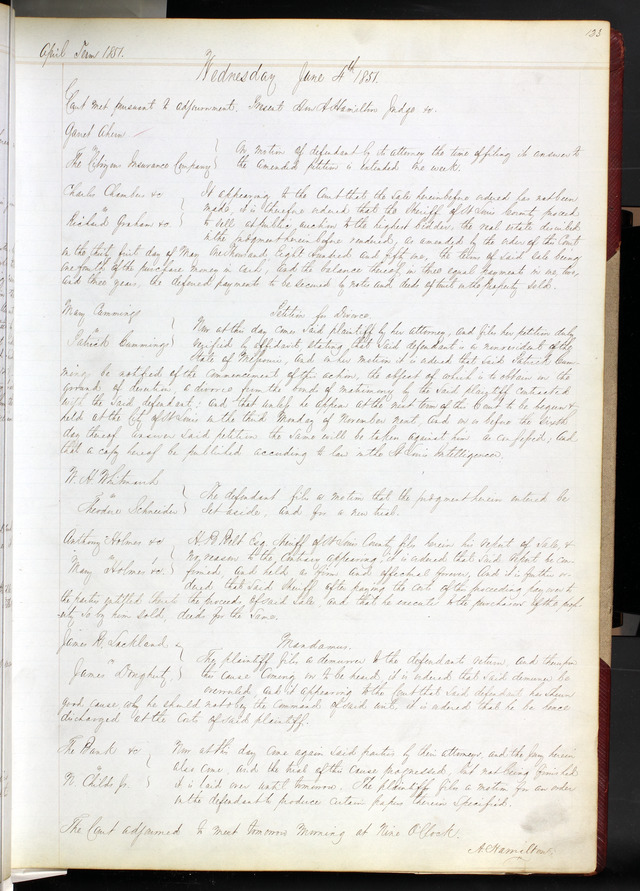 133
April Term 1851.
Wednesday June 4th 1851.
Court met pursuant to adjournment. Present Hon A Hamilton Judge &c.
Garret Ahern
vs
The Citizens Insurance Company
On motion of defendant by its attorney the time of filing its answer to
the amended petition is extended one week.
Charles Chambers &c
vs
Richard Graham &c.
It appearing to the Court that the sale hereinbefore ordered has not been
made, it is therefore ordered that the Sheriff of St Louis County proceed
to sell at public auction to the highest bidder, the real estate described
in the judgment hereinbefore rendered, as amended by the order of this Court
on the thirty first day of May One thousand Eight hundred and fifty one, the terms of said sale being
one fourth of the purchase money in cash, and the balance thereof in three equal payments in one, two,
and three years, the deferred payments to be secured by notes and deeds of trust on the property sold.
Mary Cummings
vs
Patrick Cummings
Petition for Divorce
Now at this day comes said plaintiff by her attorney, and files her petition duly
verified by affidavit, stating that said defendant is a nonresident of the
State of Missouri, and on her motion it is ordered that said Patrick Cum-
mings be notified of the commencement of this action, the object of which is to obtain on the
ground of desertion, a divorce from the bonds of matrimony by the said plaintiff contracted
with the said defendant; and that unless he appear at the next term of this Court to be begun &
held at the City of St Louis on the third Monday of November next, and on or before the Sixth
day thereof answer said petition the same will be taken against him as confessed; and
that a copy hereof be published according to law in the St Louis Intelligencer.
W. H. Whitmarsh
vs
Theodore Schneider
The defendant files a motion that the judgment herein entered be
set aside, and for a new trial.
Anthony Holmes &c
vs
Mary Holmes &c.
Esq Sheriff of St Louis County files herein his report of sale, &
no reason to the contrary appearing, it is ordered that said report be con-
firmed, and held as firm and effectual forever, and it is further or-
dered, that said Sheriff after paying the costs of this proceeding pay over to
the parties entitled thereto the proceeds of said sale, and that he execute to the purchasers of the prop-
erty so by him sold, deeds for the same.
James R. Lackland
vs
James Dougherty
Mandamus.
The plaintiff files a demurrer to the defendants return and thereupon
the cause coming on to be heard, it is ordered that said demurrer be
overruled, and it appearing to the Court that said defendant has shown
good cause why he should not obey the command of said writ, it is ordered that he be hence
discharged at the costs of said plaintiff.
The Bank &c
vs
W. Childs Jr.
Now at this day came again said parties by their attorneys, and the jury herein
also came, and the trial of this cause progressed, but not being finished
it is laid over until tomorrow. The plaintiff files a motion for an order
on the defendant to produce certain papers therein specified.
The Court adjourned to meet tomorrow morning at Nine O'Clock.
A. Hamilton